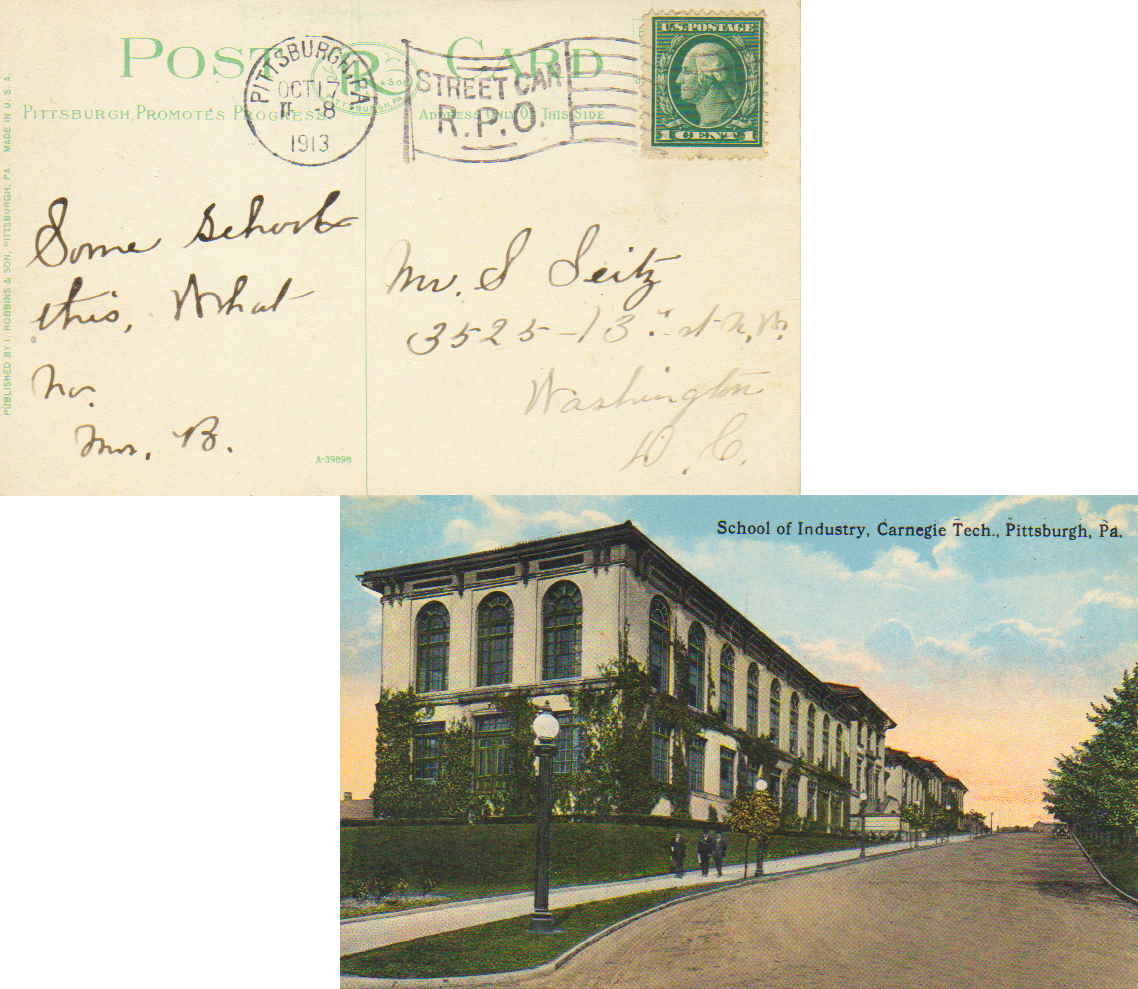 POST CARD
PITTSBURGH, PROMOTES PROGRESS
ADDRESS ONLY ON THIS SIDE
PITTSBURGH, PA.
OCT 17
-8
1913
STREET CAR
R.P.O.
U.S. POSTAGE
1 CENT 1
PUBLISHED BY I. ROBBINS & SON, PITTSBURGH, PA. MADE IN U.S.A.
Some school
this, What
no.
Mrs. B.
A-39898
Mr. S Seitz
3525-13" st N.W.
Washington
D.C.
School of Industry, Carnegie Tech., Pittsburgh, Pa.